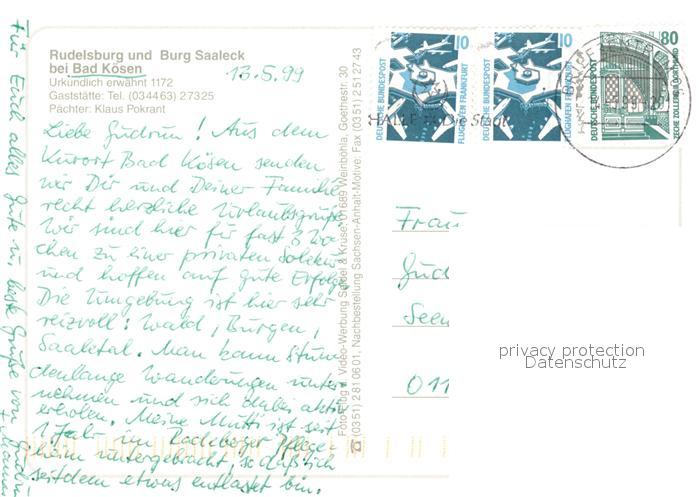 Rudelsburg und Burg Saaleck
bei Bad Kösen
Urkundlich erwähnt 1172
Gaststätte: Tel. (034463) 27325
Pächter: Klaus Pokrant
13.5.99
Liebe Gudrun! Aus dem
Kurort Bad Kösen senden
wir Dir und Deiner Familie
recht herzliche Urlaubsgrüße.
Wir sind hier für fast 3 Wo-
chen zu einer privaten Solekur
und hoffen auf gute Erfolge.
Die Umgebung ist hier sehr
reizvoll: Wald, Burgen,
Saaletal. Man kann stun-
denlange Wanderungen unter-
nehmen und sich dabei aktiv
erholen. Meine Mutti ist seit
1 Jahr im Radeberger Pflege-
heim untergebracht, so daß ich
seitdem etwas entlastet bin.
Für Euch alles Gute u. liebe Grüße von
Foto-Verlag u. Video-Werbung Seidel & Kruse, 01689 Weinböhla, Goethestr. 30
☎ (0351) 2810601, Nachbestellung Sachsen-Anhalt-Motive: Fax (0351) 2512743
10
DEUTSCHE BUNDESPOST
FLUGHAFEN FRANKFURT
10
DEUTSCHE BUNDESPOST
FLUGHAFEN FRANKFURT
80
DEUTSCHE BUNDESPOST
ZECHE ZOLLERN II DORTMUND
HALLE Die Stadt
BRIEFZENTRUM
Frau
Gud
Seen
011
privacy protection
Datenschutz